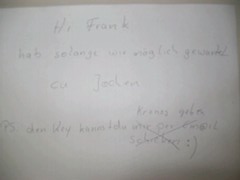 Hi Frank
hab solange wie möglich gewartet
cu Jochen
Kronos geben
PS. den Key kannst du mir per email
schicken :)